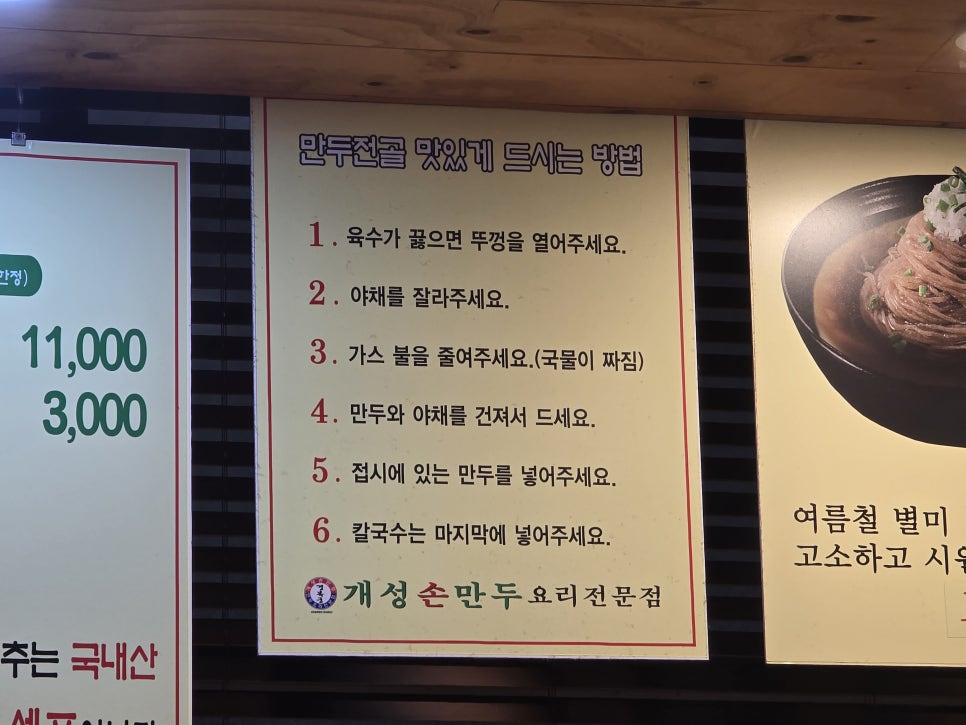 한정)
11,000
3,000
추는 국내산
만두전골 맛있게 드시는 방법
1. 육수가 끓으면 뚜껑을 열어주세요.
2. 야채를 잘라주세요.
3. 가스 불을 줄여주세요.(국물이 짜짐)
4. 만두와 야채를 건져서 드세요.
5. 접시에 있는 만두를 넣어주세요.
6. 칼국수는 마지막에 넣어주세요.
개성손만두요리전문점
여름철 별미
고소하고 시원